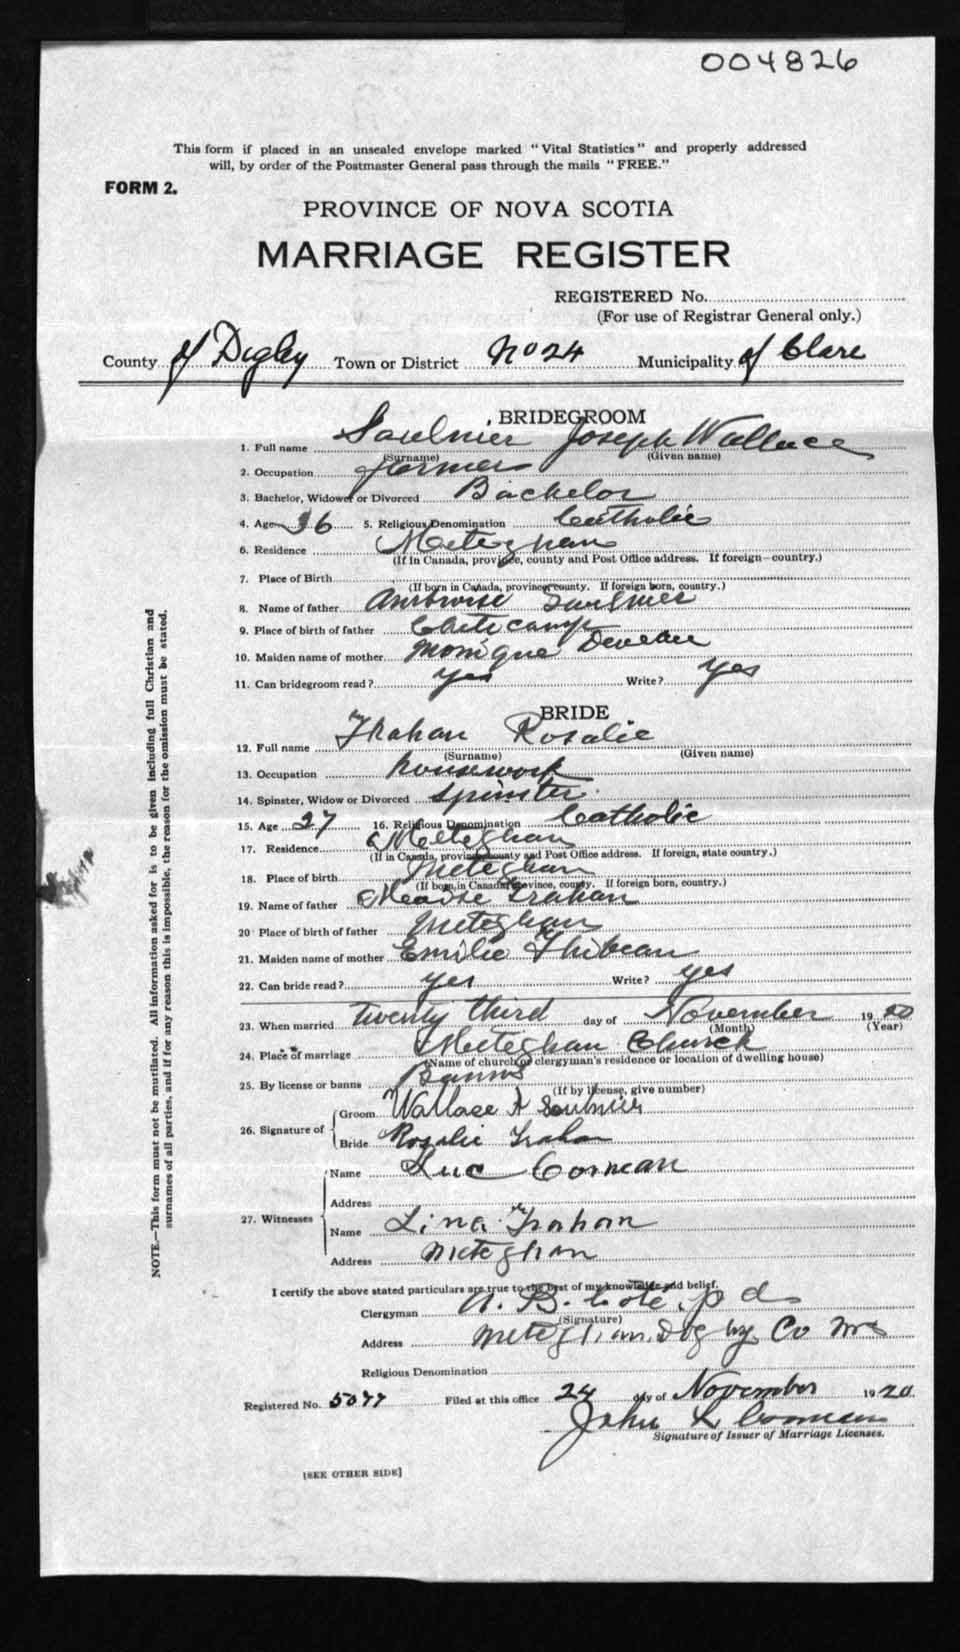 004826
This form if placed in an unsealed envelope marked "Vital Statistics" and properly addressed
will, by order of the Postmaster General pass through the mails "FREE."
FORM 2.
PROVINCE OF NOVA SCOTIA
MARRIAGE REGISTER
REGISTERED No.
(For use of Registrar General only.)
County of Digby Town or District No 24 Municipality of Clare
BRIDEGROOM
1. Full name Saulnier Joseph Wallace
(Surname) (Given name)
2. Occupation farmer
3. Bachelor, Widower or Divorced Bachelor
4. Age 36 5. Religious Denomination Catholic
6. Residence Meteghan
(If in Canada, province, county and Post Office address. If foreign—country.)
7. Place of Birth
(If born in Canada, province, county. If foreign born, country.)
8. Name of father Ambroise Saulnier
9. Place of birth of father Cheticamp
10. Maiden name of mother Monique Deveau
11. Can bridegroom read? yes Write? yes
BRIDE
12. Full name Trahan Rosalie
(Surname) (Given name)
13. Occupation housework
14. Spinster, Widow or Divorced spinster
15. Age 27 16. Religious Denomination Catholic
17. Residence Meteghan
(If in Canada, province, county and Post Office address. If foreign, state country.)
18. Place of birth Meteghan
(If born, in Canada, province, county. If foreign born, country.)
19. Name of father Trahan
20 Place of birth of father Meteghan
21. Maiden name of mother Emilie Thibeau
22. Can bride read? yes Write? yes
23. When married twenty third day of November 1920
(Month) (Year)
24. Place of marriage Meteghan Church
(Name of church or clergyman's residence or location of dwelling house)
25. By license or banns Banns
(If by license, give number)
26. Signature of
Groom Wallace Saulnier
Bride Rosalie Trahan
27. Witnesses
Name Luc Comeau
Address
Name Lina Trahan
Address Meteghan
I certify the above stated particulars are true to the best of my knowledge and belief.
Clergyman A. B. Coté, p d
(Signature)
Address Meteghan, Digby Co NS
Religious Denomination
Registered No. 5077 Filed at this office 24 day of November 1920.
John L Comeau
Signature of Issuer of Marriage Licenses.
[SEE OTHER SIDE]
NOTE.—This form must not be mutilated. All information asked for is to be given including full Christian and
surnames of all parties, and if for any reason this is impossible, the reason for the omission must be stated.